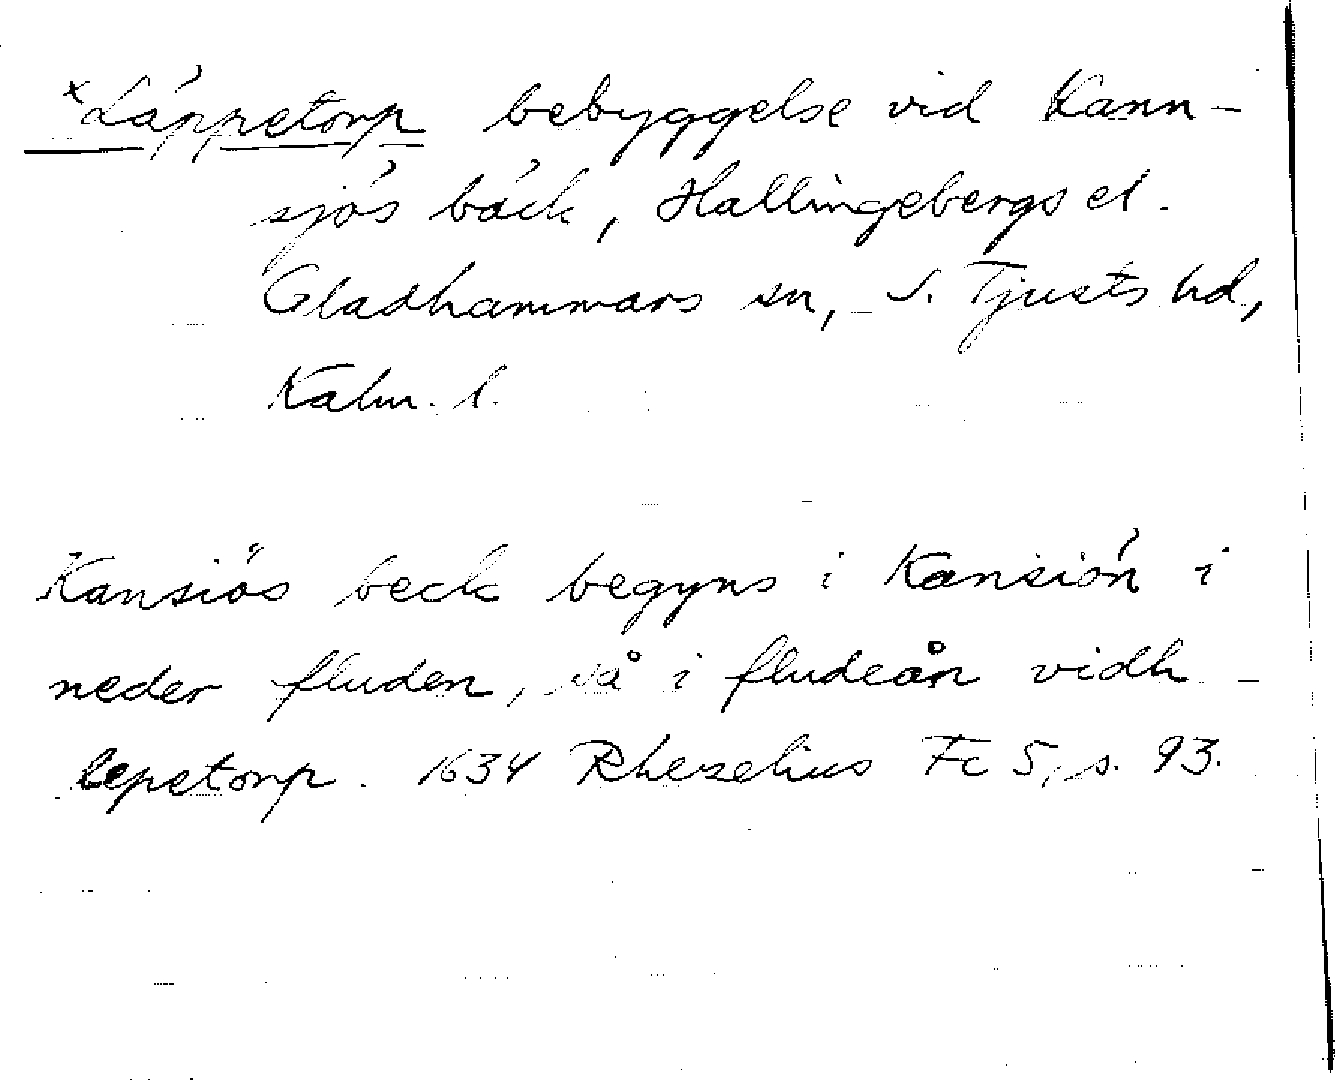 ˣLäppetorp bebyggelse vid Kann-
sjös bäck, Hallingebergs el.
Gladhammars sn, S. Tjusts hd,
Kalm. l.
Kansiös beck begyns i Kansiön i
neder fluden, så i fludeån vidh
lepetorp. 1634 Rhezelius Fc 5, s. 93.